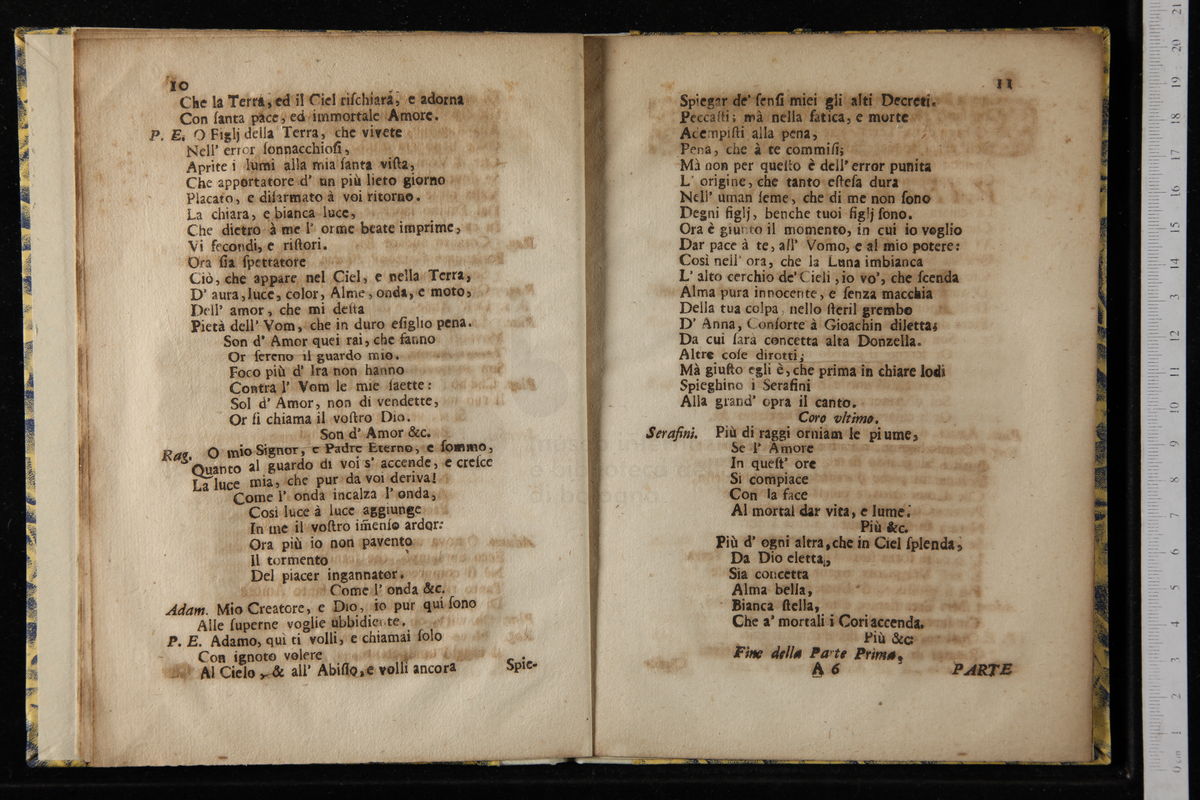 10
Che la Terra, ed il Ciel riſchiara, e adorna
Con ſanta pace, ed immortale Amore.
P. E. O Figlj della Terra, che vivete
Nell' error ſonnacchioſi,
Aprite i lumi alla mia ſanta viſta,
Che apportatore d' un più lieto giorno
Placato, e diſarmato à voi ritorno.
La chiara, e bianca luce,
Che dietro à me l' orme beate imprime,
Vi fecondi, e riſtori.
Ora ſia ſpettatore
Ciò, che appare nel Ciel, e nella Terra,
D' aura, luce, color, Alme, onda, e moto,
Dell' amor, che mi deſta
Pietà dell' Vom, che in duro eſiglio pena.
Son d' Amor quei rai, che fanno
Or ſereno il guardo mio.
Foco più d' Ira non hanno
Contra l' Vom le mie ſaette:
Sol d' Amor, non di vendette,
Or ſi chiama il voſtro Dio.
Son d' Amor &c.
Rag. O mio Signor, e Padre Eterno, e ſommo,
Quanto al guardo di voi s' accende, e creſce
La luce mia, che pur da voi deriva!
Come l' onda incalza l' onda,
Così luce à luce aggiunge
In me il voſtro im̃enſo ardor:
Ora più io non pavento
Il tormento
Del piacer ingannator.
Come l' onda &c.
Adam. Mio Creatore, e Dio, io pur qui ſono
Alle ſuperne voglie ubbidiente.
P. E. Adamo, quì ti volli, e chiamai ſolo
Con ignoto volere
Al Cielo, & all' Abiſſo, e volli ancora
Spie-
11
Spiegar de' ſenſi miei gli alti Decreti.
Peccaſti; mà nella fatica, e morte
Adempiſti alla pena,
Pena, che à te commiſi;
Mà non per queſto è dell' error punita
L' origine, che tanto eſteſa dura
Nell' uman ſeme, che di me non ſono
Degni figlj, benche tuoi figlj ſono.
Ora è giunto il momento, in cui io voglio
Dar pace à te, all' Vomo, e al mio potere:
Così nell' ora, che la Luna imbianca
L' alto cerchio de' Cieli, io vo', che ſcenda
Alma pura innocente, e ſenza macchia
Della tua colpa nello ſteril grembo
D' Anna, Conſorte à Gioachin diletta;
Da cui ſarà concetta alta Donzella.
Altre coſe dirotti;
Mà giuſto egli è, che prima in chiare lodi
Spieghino i Serafini
Alla grand' opra il canto.
Coro vltimo.
Serafini. Più di raggi orniam le piume,
Se l' Amore
In queſt' ore
Si compiace
Con la face
Al mortal dar vita, e lume.
Più &c.
Più d' ogni altra, che in Ciel ſplenda,
Da Dio eletta,
Sia concetta
Alma bella,
Bianca ſtella,
Che a' mortali i Cori accenda.
Più &c.
Fine della Parte Prima,
A 6
PARTE